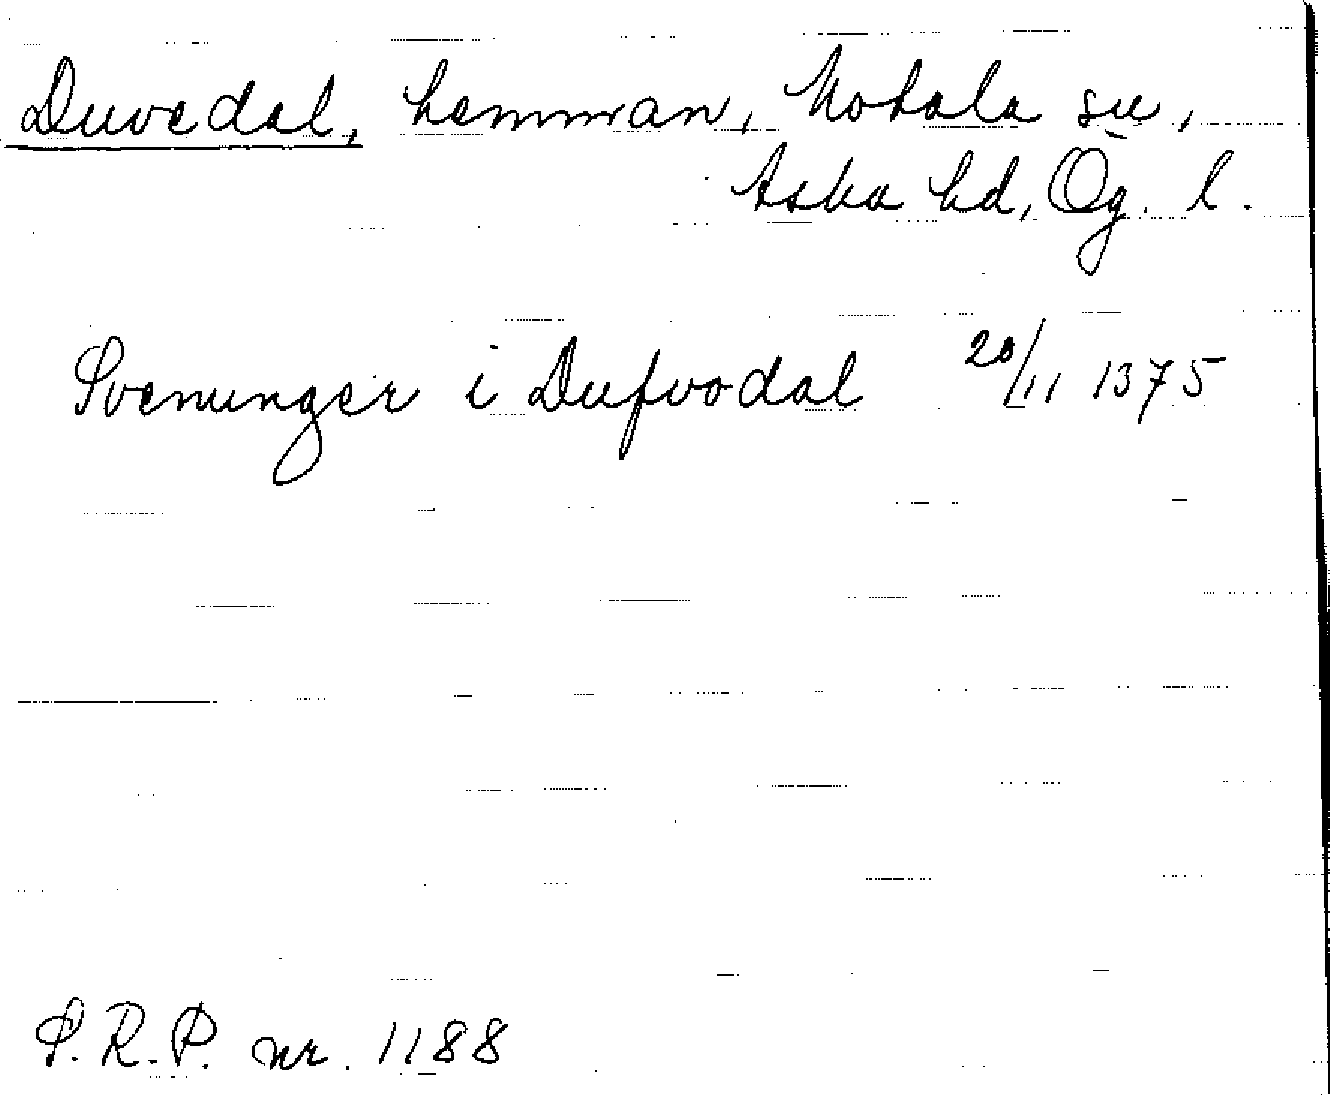 Duvedal, hemman, Motala sn,
Aska hd, Ög. l.
Svenunger i Dufvodal 20/11 1375
S.R.P. nr. 1188